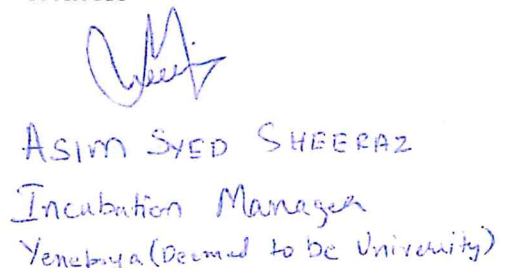 ASIM SYED SHEERAZ
Incubation Manager
Yenepoya (Deemed to be University)